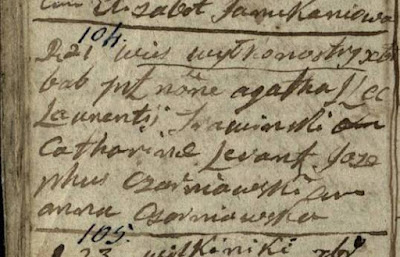 cum Elizabet Janukaniowa
104.
D 21 wies wytkonostry xbri
bab ptt nőne agatha fl ec
Laurentij Trawinski cu
Catharine Levant Joze
phus Czarniawski cu
anna Czarniawska
105.
D 23 wilkiniki xbr